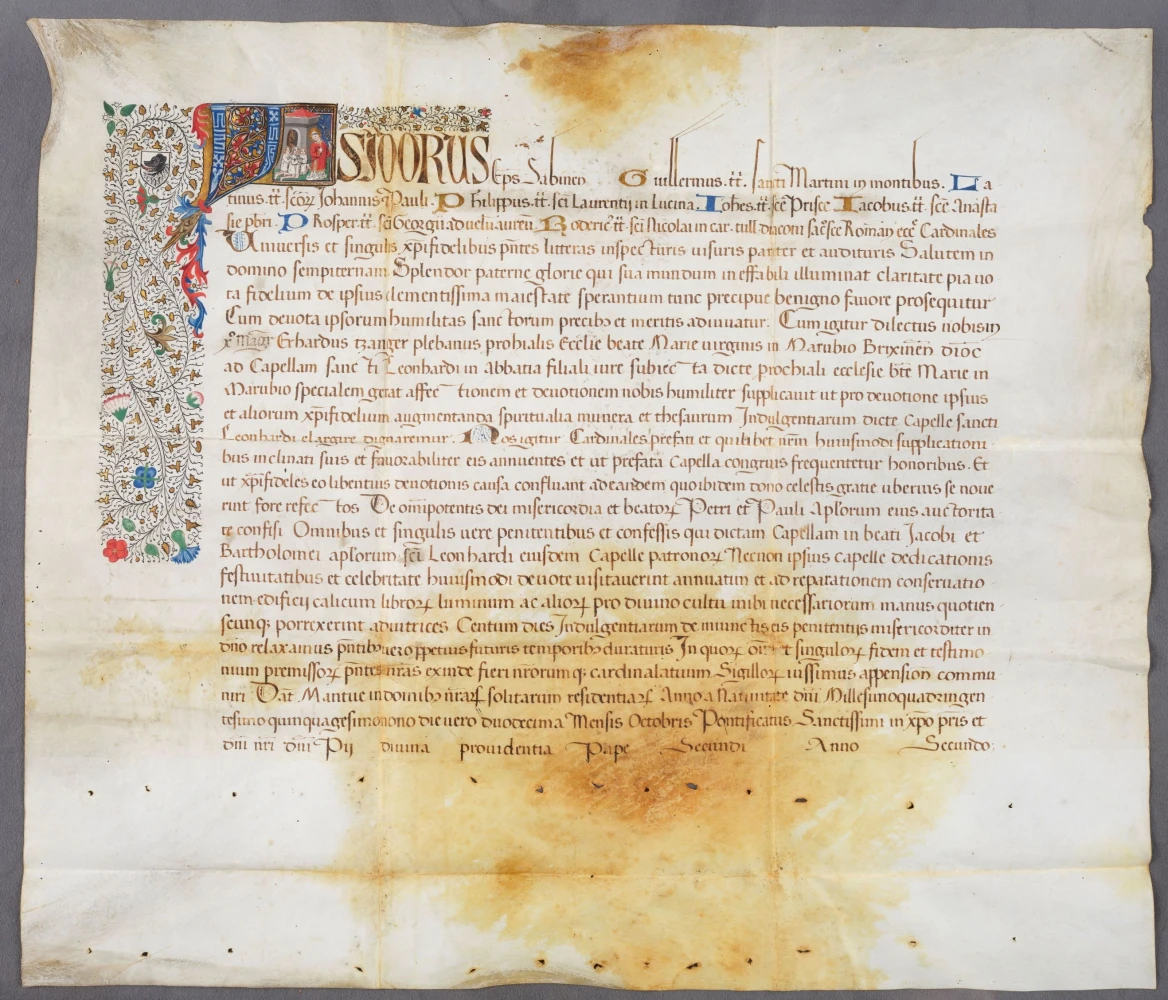 ISIDORUS Eps Sabineñ Guillermus .tt̄. sancti Martini in montibus. La
tinus .tt̄. scōrꝝ Johannis ⁊ Pauli. Philippus .tt̄. sci Laurentij in lucina. Iohēs .tt̄. scē Prisce Iacobus .tt̄. scē Anasta
sie pbri. Prosper .tt̄. sci Georgij ad velū aureū. Roderic⁹ .tt̄. sci Nicolai in car. tull. diaconi sac̄sc̄e Romañ ecc̄ Cardinales
Universis et singulis xp̄ifidelibus pn̄tes litteras inspecturis visuris pariter et audituris Salutem in
domino sempiternam Splendor paterne glorie qui sua mundum ineffabili illuminat claritate pia vo
ta fidelium de ipsius clementissima maiestate sperantium tunc precipue benigno favore prosequitur
Cum devota ipsorum humilitas sanctorum precibꝫ et meritis adiuvatur. Cum igitur dilectus nobis in
xp̄o Magr̄ Erhardus tzanger plebanus prohialis Ecclie beate Marie virginis in Marubio Brixineñ dioc̄
ad Capellam sancti Leonhardi in Abbatia filiali iure subiecta dicte prochiali ecclesie bt̄e Marie in
Marubio specialem gerat affectionem et devotionem nobis humiliter supplicavit ut pro devotione ipsius
et aliorum xp̄ifidelium augmentanda spiritualia munera et thesaurum Indulgentiarum dicte Capelle sancti
Leonhardi elargire dignaremur. Nos igitur Cardinales prefati et quilibet nr̄m huiusmodi supplicationi
bus inclinati suis et favorabiliter eis annuentes et ut prefata Capella congruis frequentetur honoribus. Et
ut xp̄ifideles eo libentius devotionis causa confluant ad eandem quo ibidem dono celestis gratie uberius se nove
rint fore refectos De omīpotentis dei misericordia et beatorꝝ Petri et Pauli Apl̄orum eius auctorita
te confisi Omnibus et singulis vere penitentibus et confessis qui dictam Capellam in beati Jacobi et
Bartholomei apl̄orum sc̄i Leonhardi eiusdem Capelle patronorꝝ Necnon ipsius capelle dedicationis
festivitatibus et celebritate huiusmodi devote visitaverint annuatim et ad reparationem conservatio
nem edificij calicum librorꝝ luminum ac aliorꝝ pro divino cultu inibi necessariorum manus quotien
scunqꝫ porrexerint adiutrices Centum dies Indulgentiarum de iniunctis eis penitentijs misericorditer in
dn̄o relaxamus pn̄tibꝫ vero ꝑpetuis futuris temporibꝫ duraturis In quorꝝ om̄ et singulorꝝ fidem et testimo
nium premissorꝝ pn̄tes nr̄as exinde fieri nr̄orumqꝫ cardinalatuum Sigillorꝝ iussimus appension̄ commu
niri Dat̄ Mantue in domibꝫ nr̄arꝝ solitarum residentiarꝝ Anno a Nativitate dn̄i Millesimoquadringen
tesimo quinquagesimonono die vero duodecima Mensis Octobris Pontificatus Sanctissimi in xp̄o pr̄is et
dn̄i nr̄i dn̄i Pij divina providentia Pape Secundi Anno Secundo